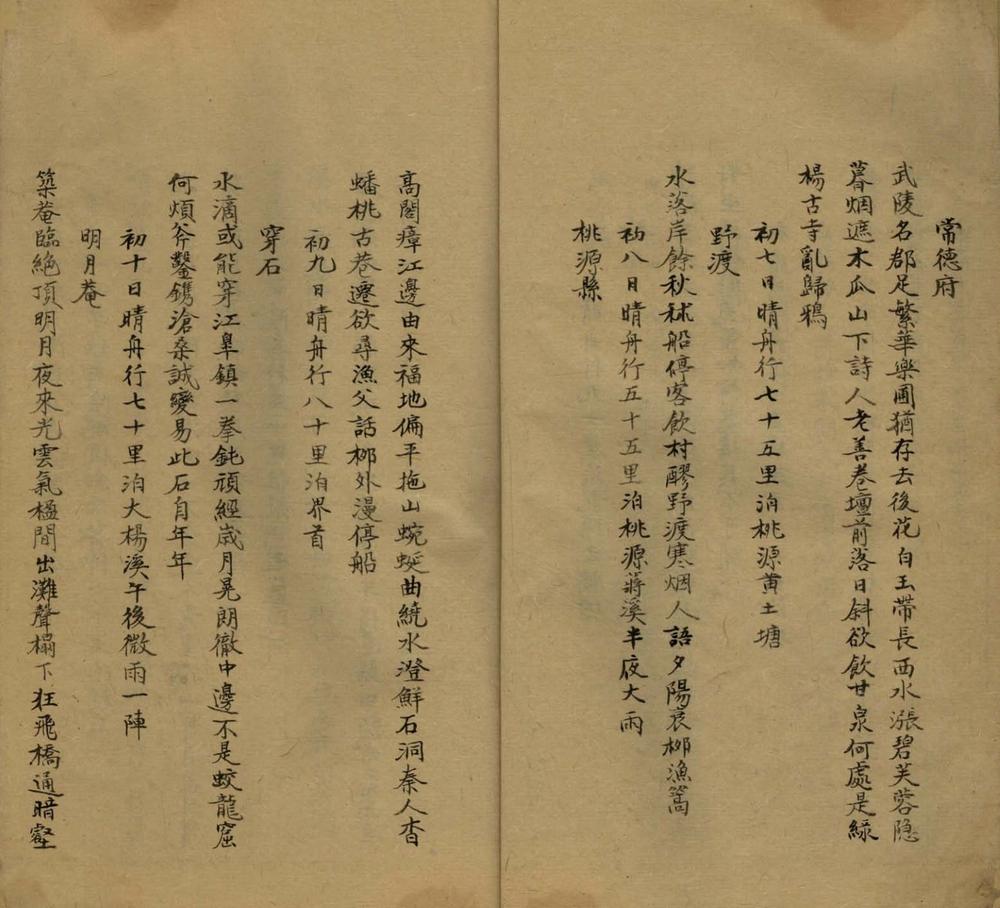 常德府
武陵名郡足繁華樂圃猶存去後花白玉帶長西水漲碧芙蓉隐
暮烟遮木瓜山下詩人老善卷壇前落日斜欲飲甘泉何處是綠
楊古寺亂歸鴉
初七日晴舟行七十五里泊桃源黄土塘
野渡
水落岸餘秋秫船停客飲村醪野渡寒烟人語夕陽衰柳漁篙
初八日晴舟行五十五里泊桃源蔣溪半夜大雨
桃源縣
高閣瘴江邊由來福地偏平拖山蜿蜒曲繞水澄鮮石洞秦人杳
蟠桃古巷遷欲尋漁父話柳外漫停船
初九日晴舟行八十里泊界首
穿石
水滴或能穿江臯鎮一拳鈍頑經歲月晃朗徹中邊不是蛟龍窟
何煩斧鑿鐫滄桑誠變易此石自年年
初十日晴舟行七十里泊大楊溪午後微雨一陣
明月菴
築菴臨絶頂明月夜來光雲氣楹間出灘聲榻下狂飛橋通暗壑